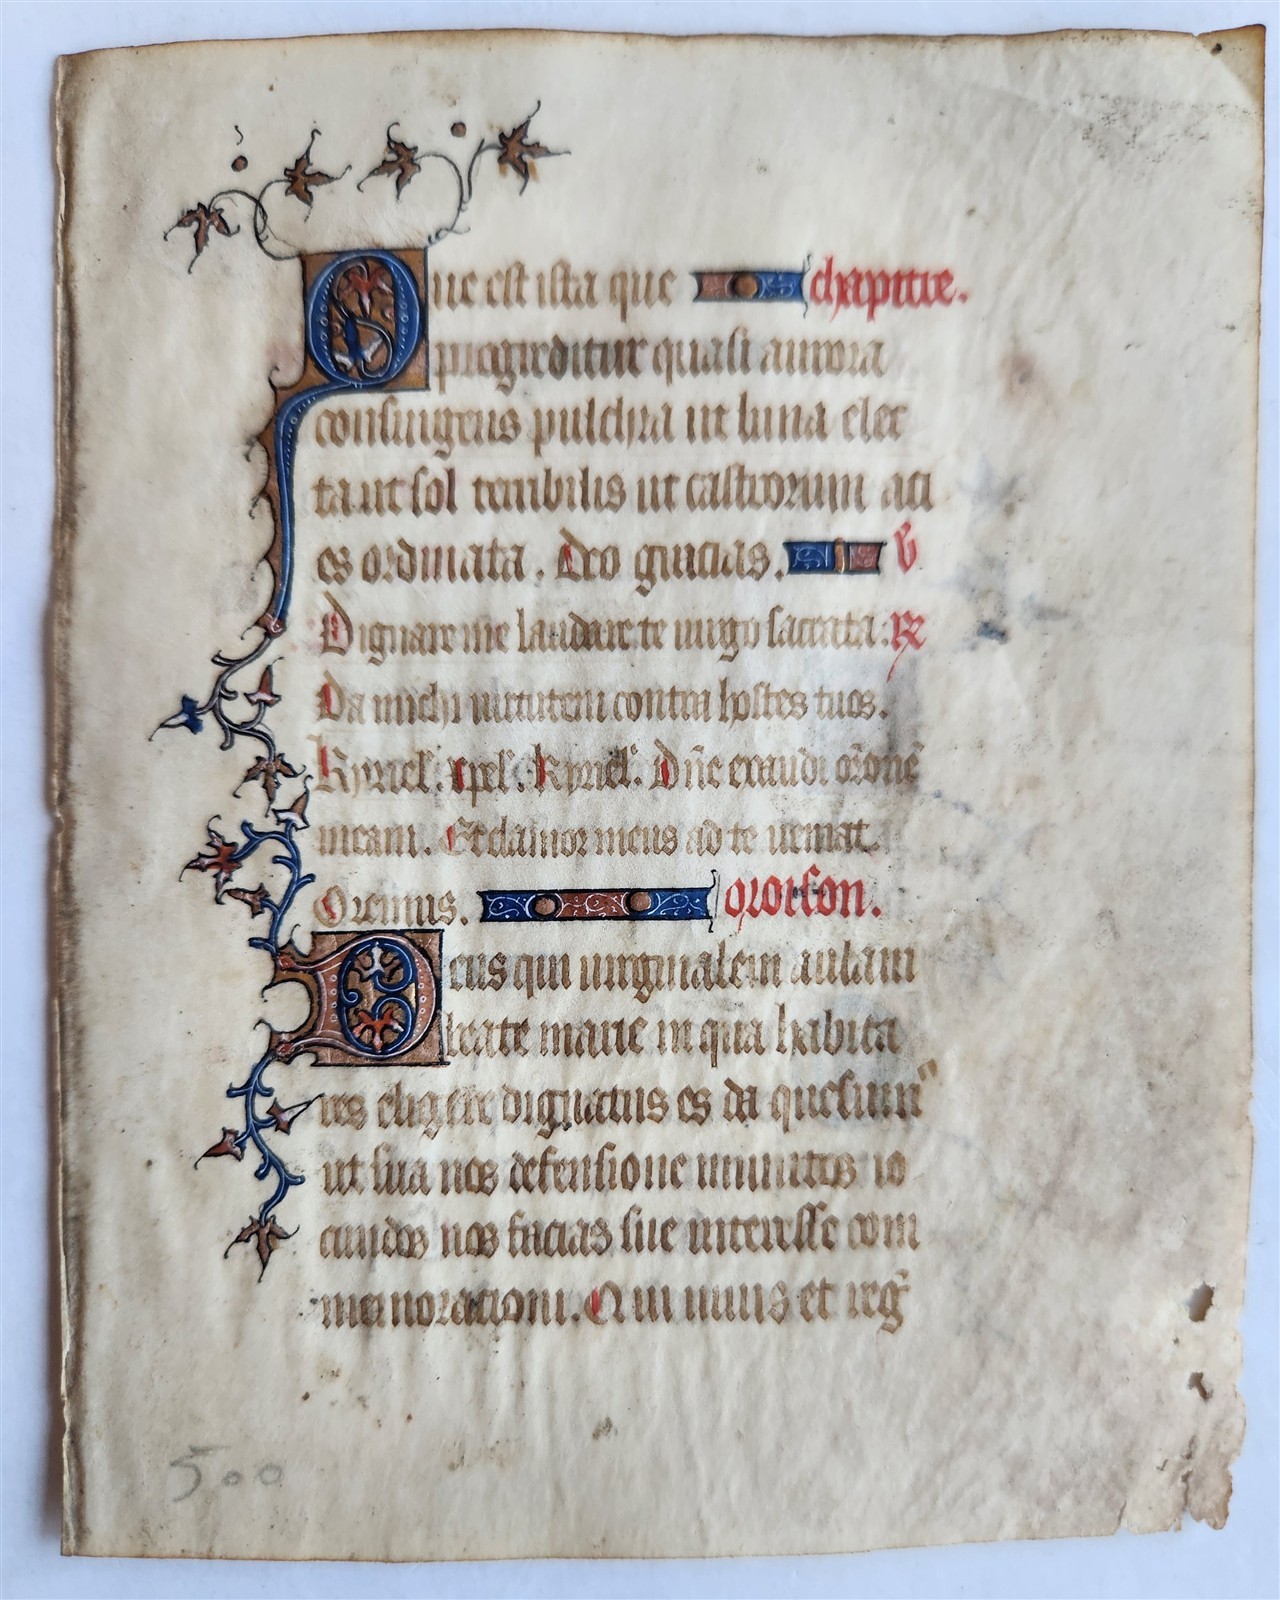 Que est ista que chapitre.
progreditur quasi aurora
consurgens pulchra ut luna elec
ta ut sol terribilis ut castrorum aci
es ordinata. Deo gracias. V
Dignare me laudare te uirgo sacrata: R
Da michi uirtutem contra hostes tuos.
Kyriel'. xpel'. Kyriel'. Dn̄e exaudi or̄onē
meam. Et clamor meus ad te ueniat.
Oremus. oroison.
Deus qui uirginalem aulam
beate marie in qua habita
res eligere dignatus es da quesum᷒
ut sua nos defensione munitos io
cundos nos facias sue interesse com
memorationi. Qui uiuis et reg̃
500